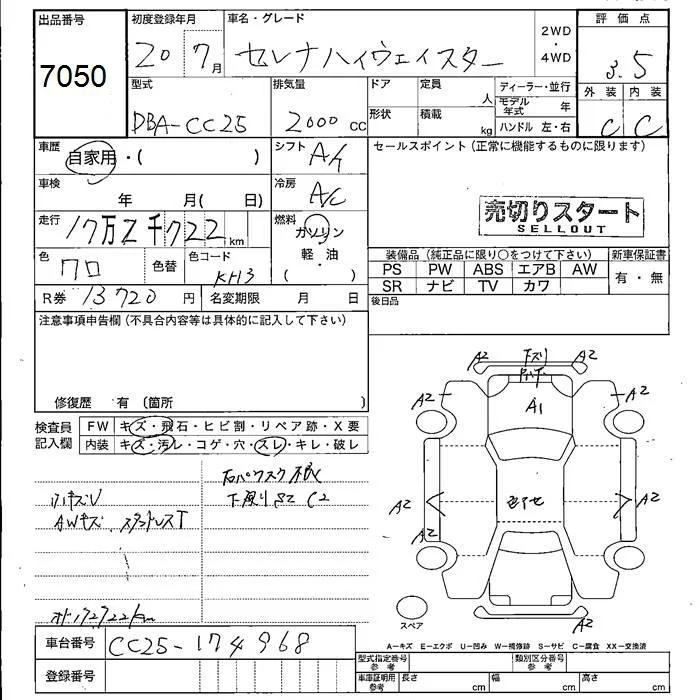 出品番号 初度登録年月 車名・グレード 2WD・4WD 評価点
7050 20 7月 セレナハイウェイスター 3.5
型式 排気量 ドア 定員 人 ディーラー・並行 外装 内装
DBA-CC25 2000cc 形状 積載 kg モデル年式 年 C C
ハンドル 左・右
車歴 自家用・( ) シフト A/4 セールスポイント(正常に機能するものに限ります)
車検 年 月( 日) 冷房 A/C
売切りスタート
SELLOUT
走行 17万2千722km 燃料 ガソリン・軽油( )
色 クロ 色替 色コード KH3
装備品(純正品に限り○をつけて下さい) 新車保証書
PS PW ABS エアB AW 有・無
SR ナビ TV カワ
R券 13720円 名変期限 月 日 後日品
注意事項申告欄(不具合内容等は具体的に記入して下さい)
修復歴 有(箇所 )
検査員記入欄 FW キズ・飛石・ヒビ割・リペア跡・X要
内装 キズ・汚レ・コゲ・穴・スレ・キレ・破レ
A2 下スリ A2
A2 A1 A2
A2 A2
A2
A2
小キズV
AWキズ
C2
スペア
A-キズ E-エクボ U-凹み W-補修跡 S-サビ C-腐食 XX-交換済
車台番号 CC25-174968
登録番号
型式指定番号 参考 類別区分番号 参考
車庫証明用 参考 長さ cm 幅 cm 高さ cm